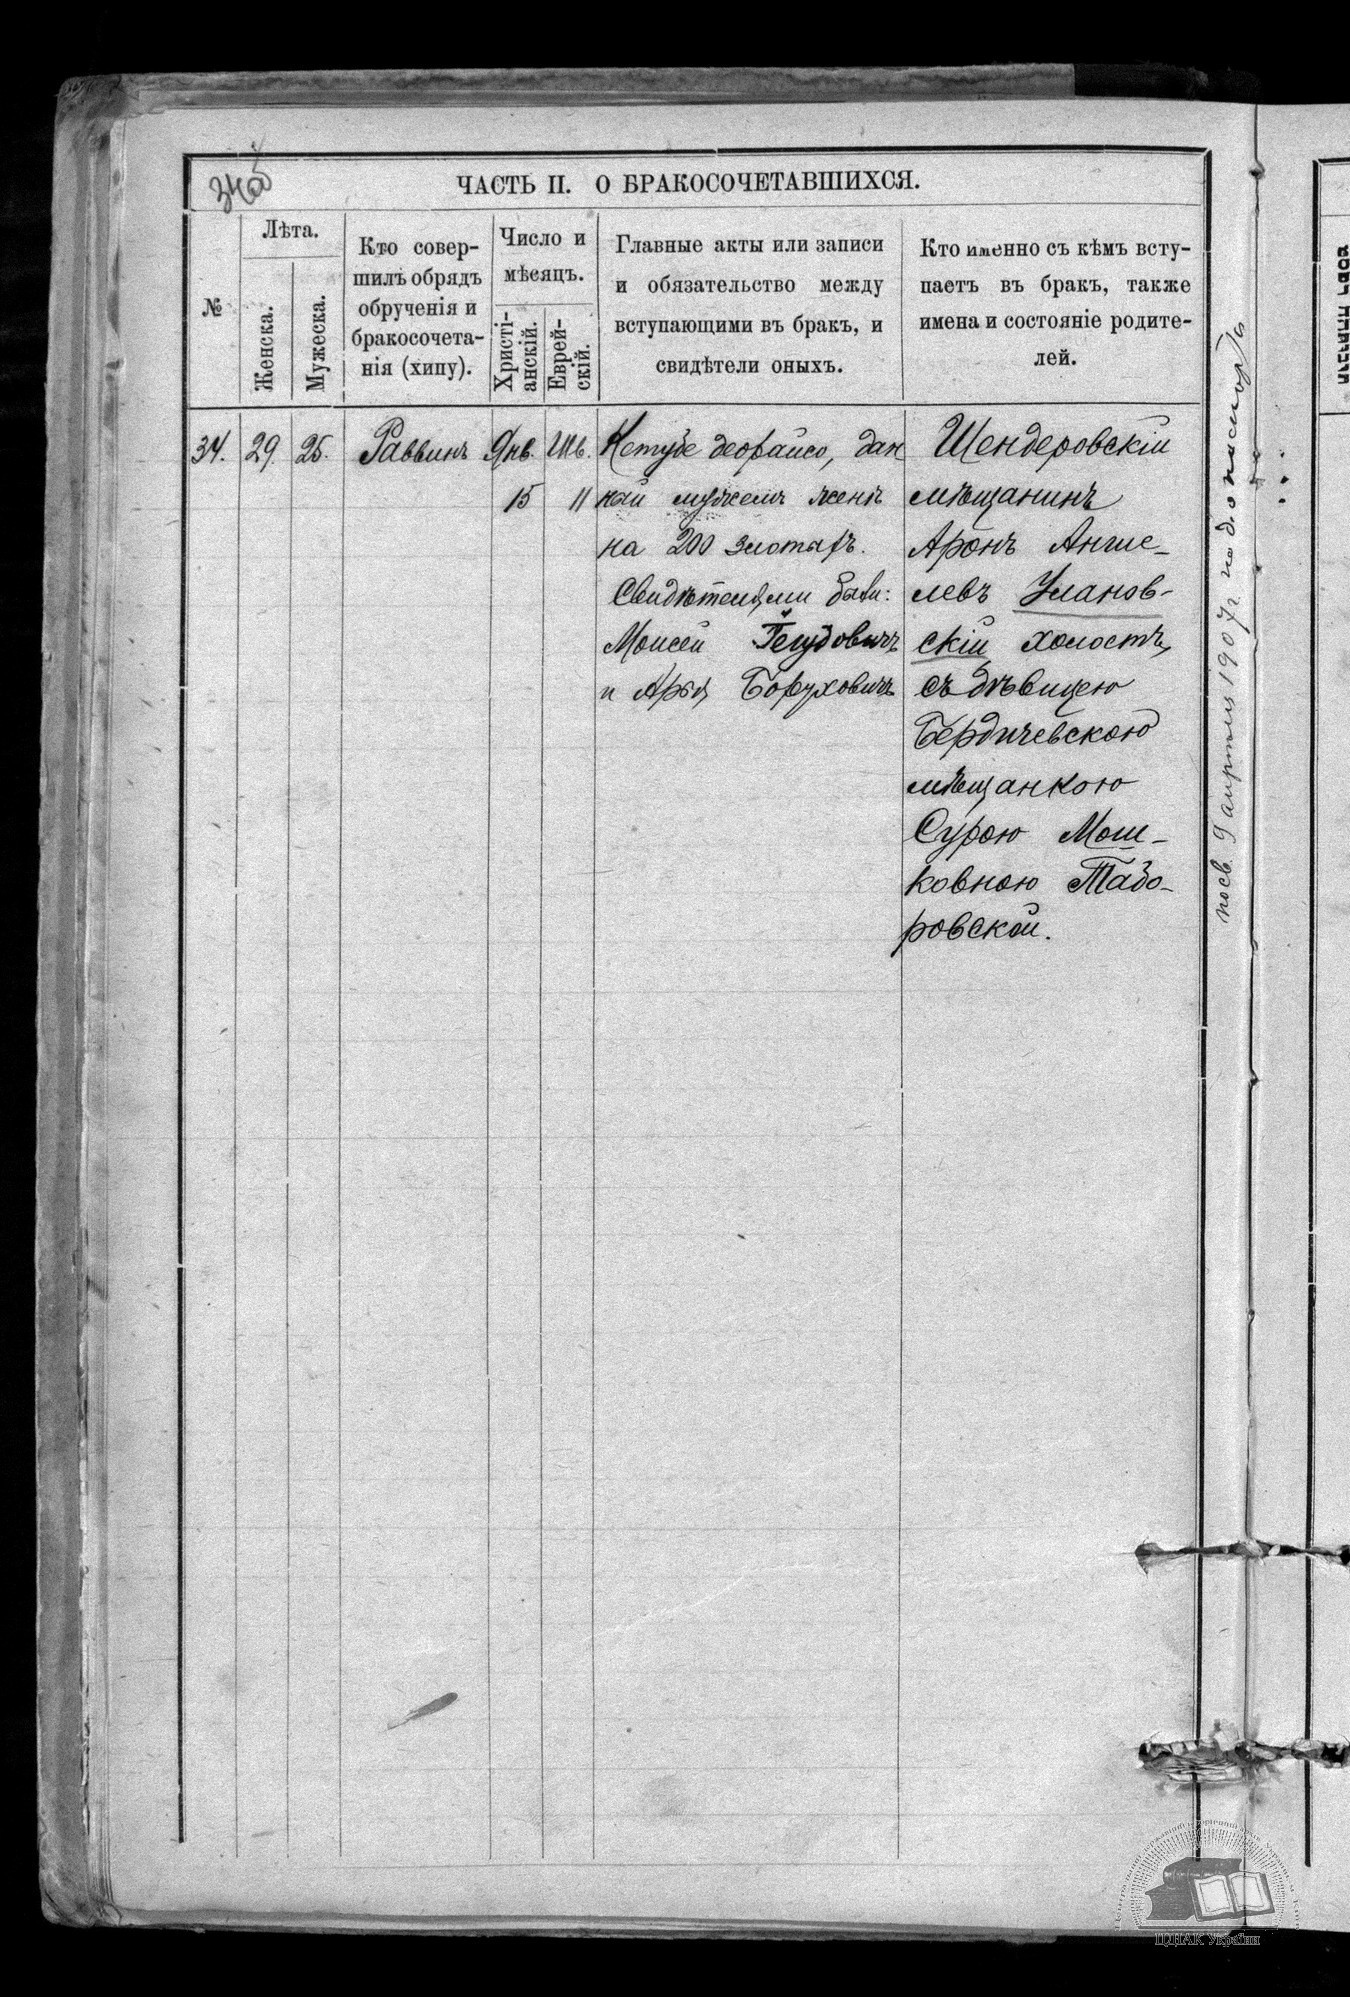 ЧАСТЬ II. О БРАКОСОЧЕТАВШИХСЯ.
№
Лѣта.
Женска.
Мужеска.
Кто совер-
шилъ обрядъ
обрученія и
бракосочета-
нія (хипу).
Число и
мѣсяцъ.
Христі-
анскій.
Еврей-
скій.
Главные акты или записи
и обязательство между
вступающими въ бракъ, и
свидѣтели оныхъ.
Кто именно съ кѣмъ всту-
паетъ въ бракъ, также
имена и состояніе родите-
лей.
34.
29.
25.
Раввинъ
Янв.
15
Шв.
11
Кетубе деорайсо, дан
ный мужемъ женѣ
на 200 злотыхъ.
Свидѣтелями были:
Моисей Гегудовичъ
и Арья Боруховичъ
Шендеровскій
мѣщанинъ
Аронъ Аншe-
левъ Уланов-
скій холостъ,
съ дѣвицею
Бердичевскою
мѣщанкою
Сурою Мош-
ковною Табо-
ровской.
9 апрѣля 1907 г. по
ЦДІАК України